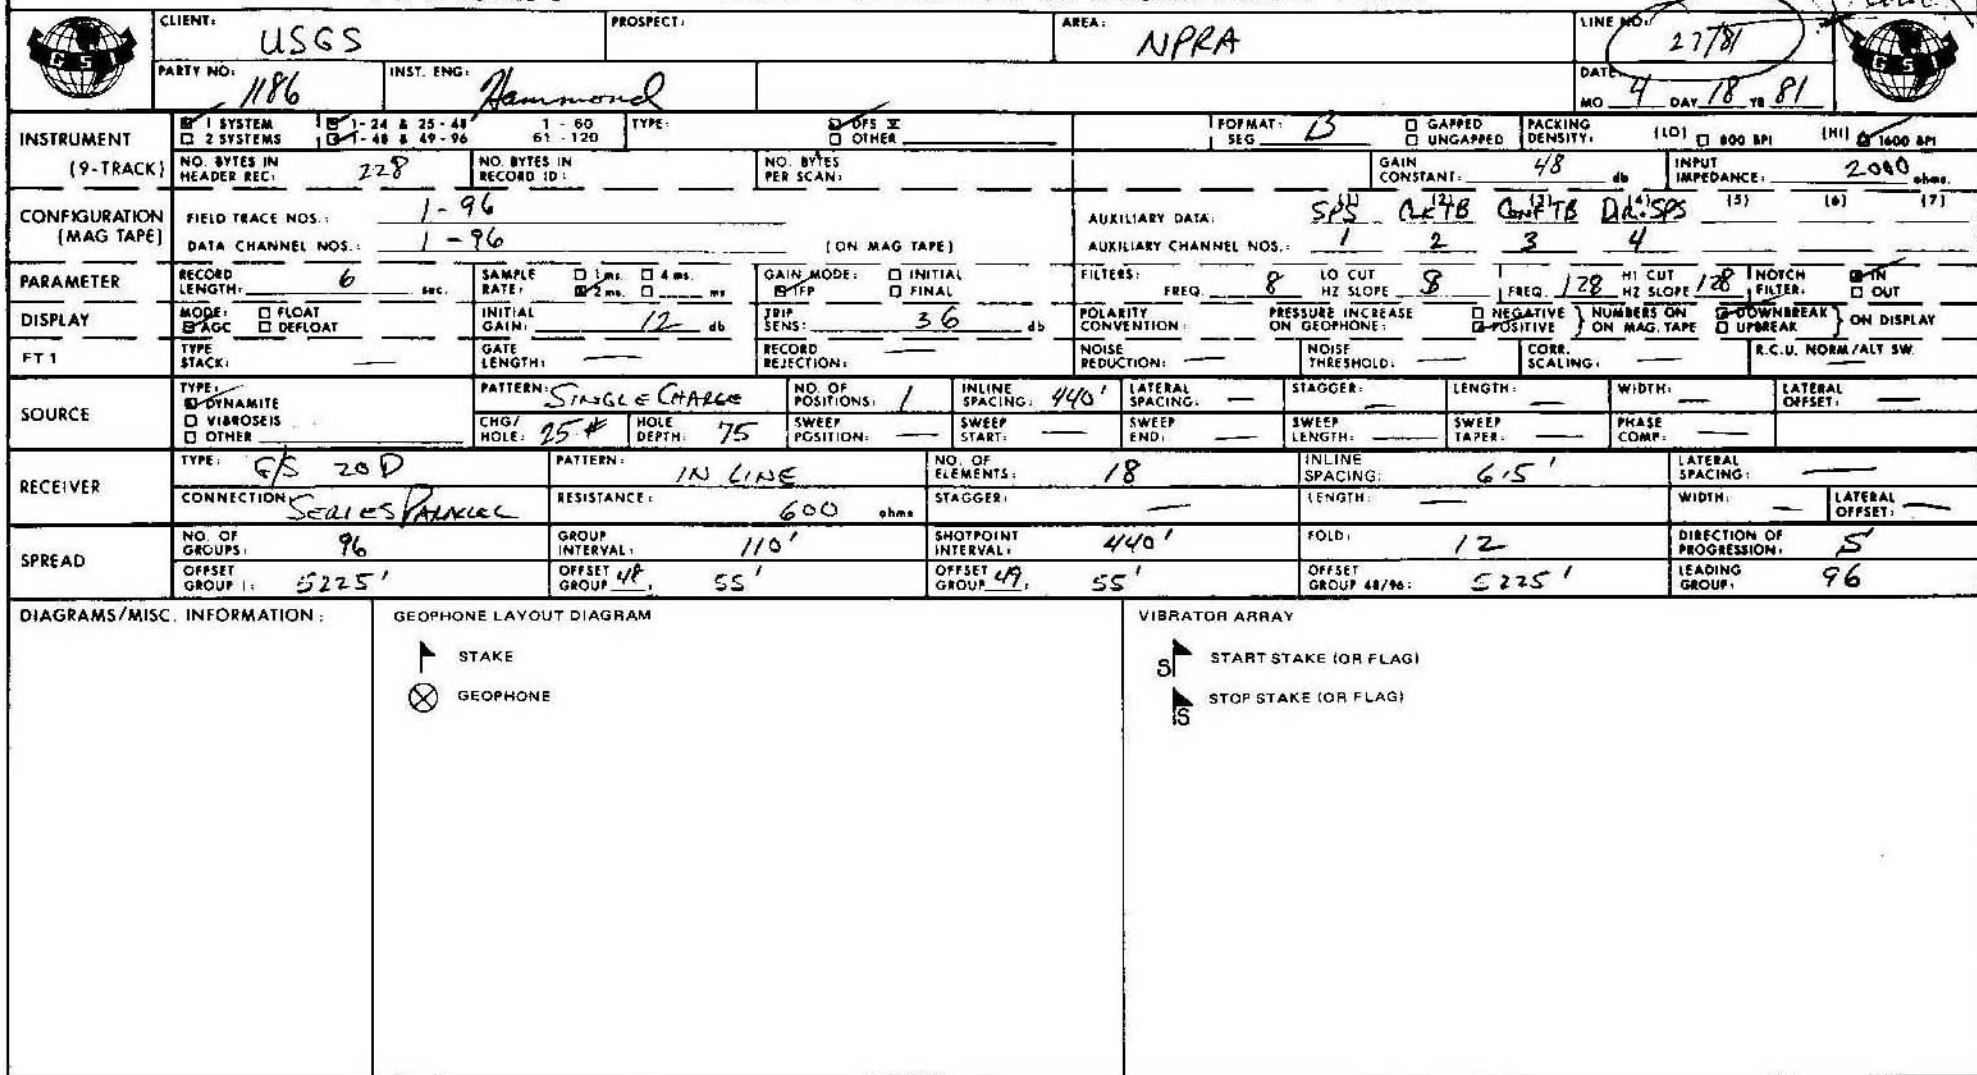 CLIENT: USGS PROSPECT: AREA: NPRA LINE NO: 27/81
GSI
PARTY NO: 1186 INST. ENG: Hammond DATE: MO 4 DAY 18 YR 81
GSI
INSTRUMENT (9-TRACK)
1 SYSTEM 1-24 & 25-48 1 - 60 TYPE: DFS V FORMAT: SEG B GAPPED PACKING DENSITY: (LO) 800 BPI (HI) 1600 BPI
2 SYSTEMS 1-48 & 49-96 61 - 120 OTHER UNGAPPED
NO. BYTES IN HEADER REC: 228 NO. BYTES IN RECORD ID: NO. BYTES PER SCAN: GAIN CONSTANT: 48 db INPUT IMPEDANCE: 2000 ohms.
CONFIGURATION (MAG TAPE)
FIELD TRACE NOS.: 1-96 AUXILIARY DATA: (1) SPS (2) CLK TB (3) CONF TB (4) DIR. SPS (5) (6) (7)
DATA CHANNEL NOS.: 1-96 (ON MAG TAPE) AUXILIARY CHANNEL NOS.: 1 2 3 4
PARAMETER
RECORD LENGTH: 6 sec. SAMPLE RATE: 1 ms. 4 ms. 2 ms. ms GAIN MODE: INITIAL IFP FINAL FILTERS: FREQ. 8 LO CUT HZ SLOPE 8 FREQ. 128 HI CUT HZ SLOPE 128 NOTCH FILTER: IN OUT
DISPLAY
MODE: FLOAT AGC DEFLOAT INITIAL GAIN: 12 db TRIP SENS: 36 db POLARITY CONVENTION: PRESSURE INCREASE ON GEOPHONE: NEGATIVE POSITIVE } NUMBERS ON MAG. TAPE DOWNBREAK UPBREAK } ON DISPLAY
FT 1
TYPE STACK: — GATE LENGTH: — RECORD REJECTION: — NOISE REDUCTION: — NOISE THRESHOLD: — CORR. SCALING: — R.C.U. NORM/ALT SW. —
SOURCE
TYPE: DYNAMITE VIBROSEIS OTHER PATTERN: SINGLE CHARGE NO. OF POSITIONS: 1 INLINE SPACING: 440' LATERAL SPACING: — STAGGER: — LENGTH: — WIDTH: — LATERAL OFFSET: —
CHG/HOLE: 25# HOLE DEPTH: 75 SWEEP POSITION: — SWEEP START: — SWEEP END: — SWEEP LENGTH: — SWEEP TAPER: — PHASE COMP: —
RECEIVER
TYPE: G/S 20D PATTERN: IN LINE NO. OF ELEMENTS: 18 INLINE SPACING: 6.5' LATERAL SPACING: —
CONNECTION: SERIES PARALLEL RESISTANCE: 600 ohms STAGGER: — LENGTH: — WIDTH: — LATERAL OFFSET: —
SPREAD
NO. OF GROUPS: 96 GROUP INTERVAL: 110' SHOTPOINT INTERVAL: 440' FOLD: 12 DIRECTION OF PROGRESSION: S
OFFSET GROUP 1: 5225' OFFSET GROUP 48: 55' OFFSET GROUP 49: 55' OFFSET GROUP 48/96: 5225' LEADING GROUP: 96
DIAGRAMS/MISC. INFORMATION: GEOPHONE LAYOUT DIAGRAM VIBRATOR ARRAY
STAKE S START STAKE (OR FLAG)
GEOPHONE S STOP STAKE (OR FLAG)